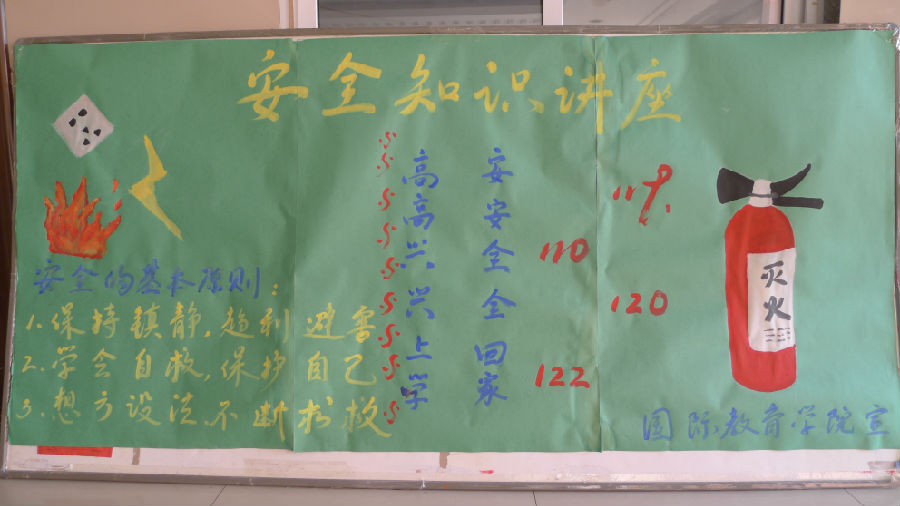 安全知识讲座
安全的基本原则：
1.保持镇静,趋利避害
2.学会自救,保护自己
3.想方设法不断求救
高高兴兴上学
安安全全回家
110
119
120
122
灭火
国际教育学院宣